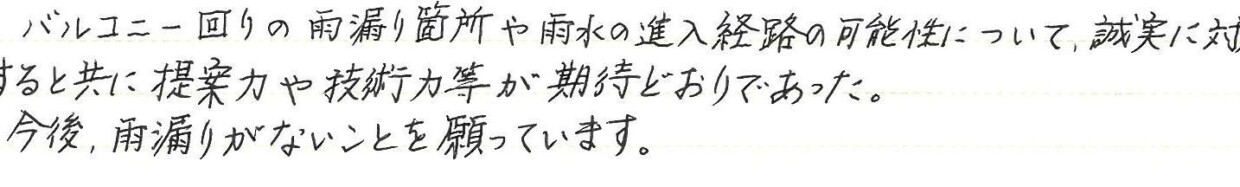 バルコニー回りの雨漏り箇所や雨水の進入経路の可能性について、誠実に対
すると共に提案力や技術力等が期待どおりであった。
今後、雨漏りがないことを願っています。